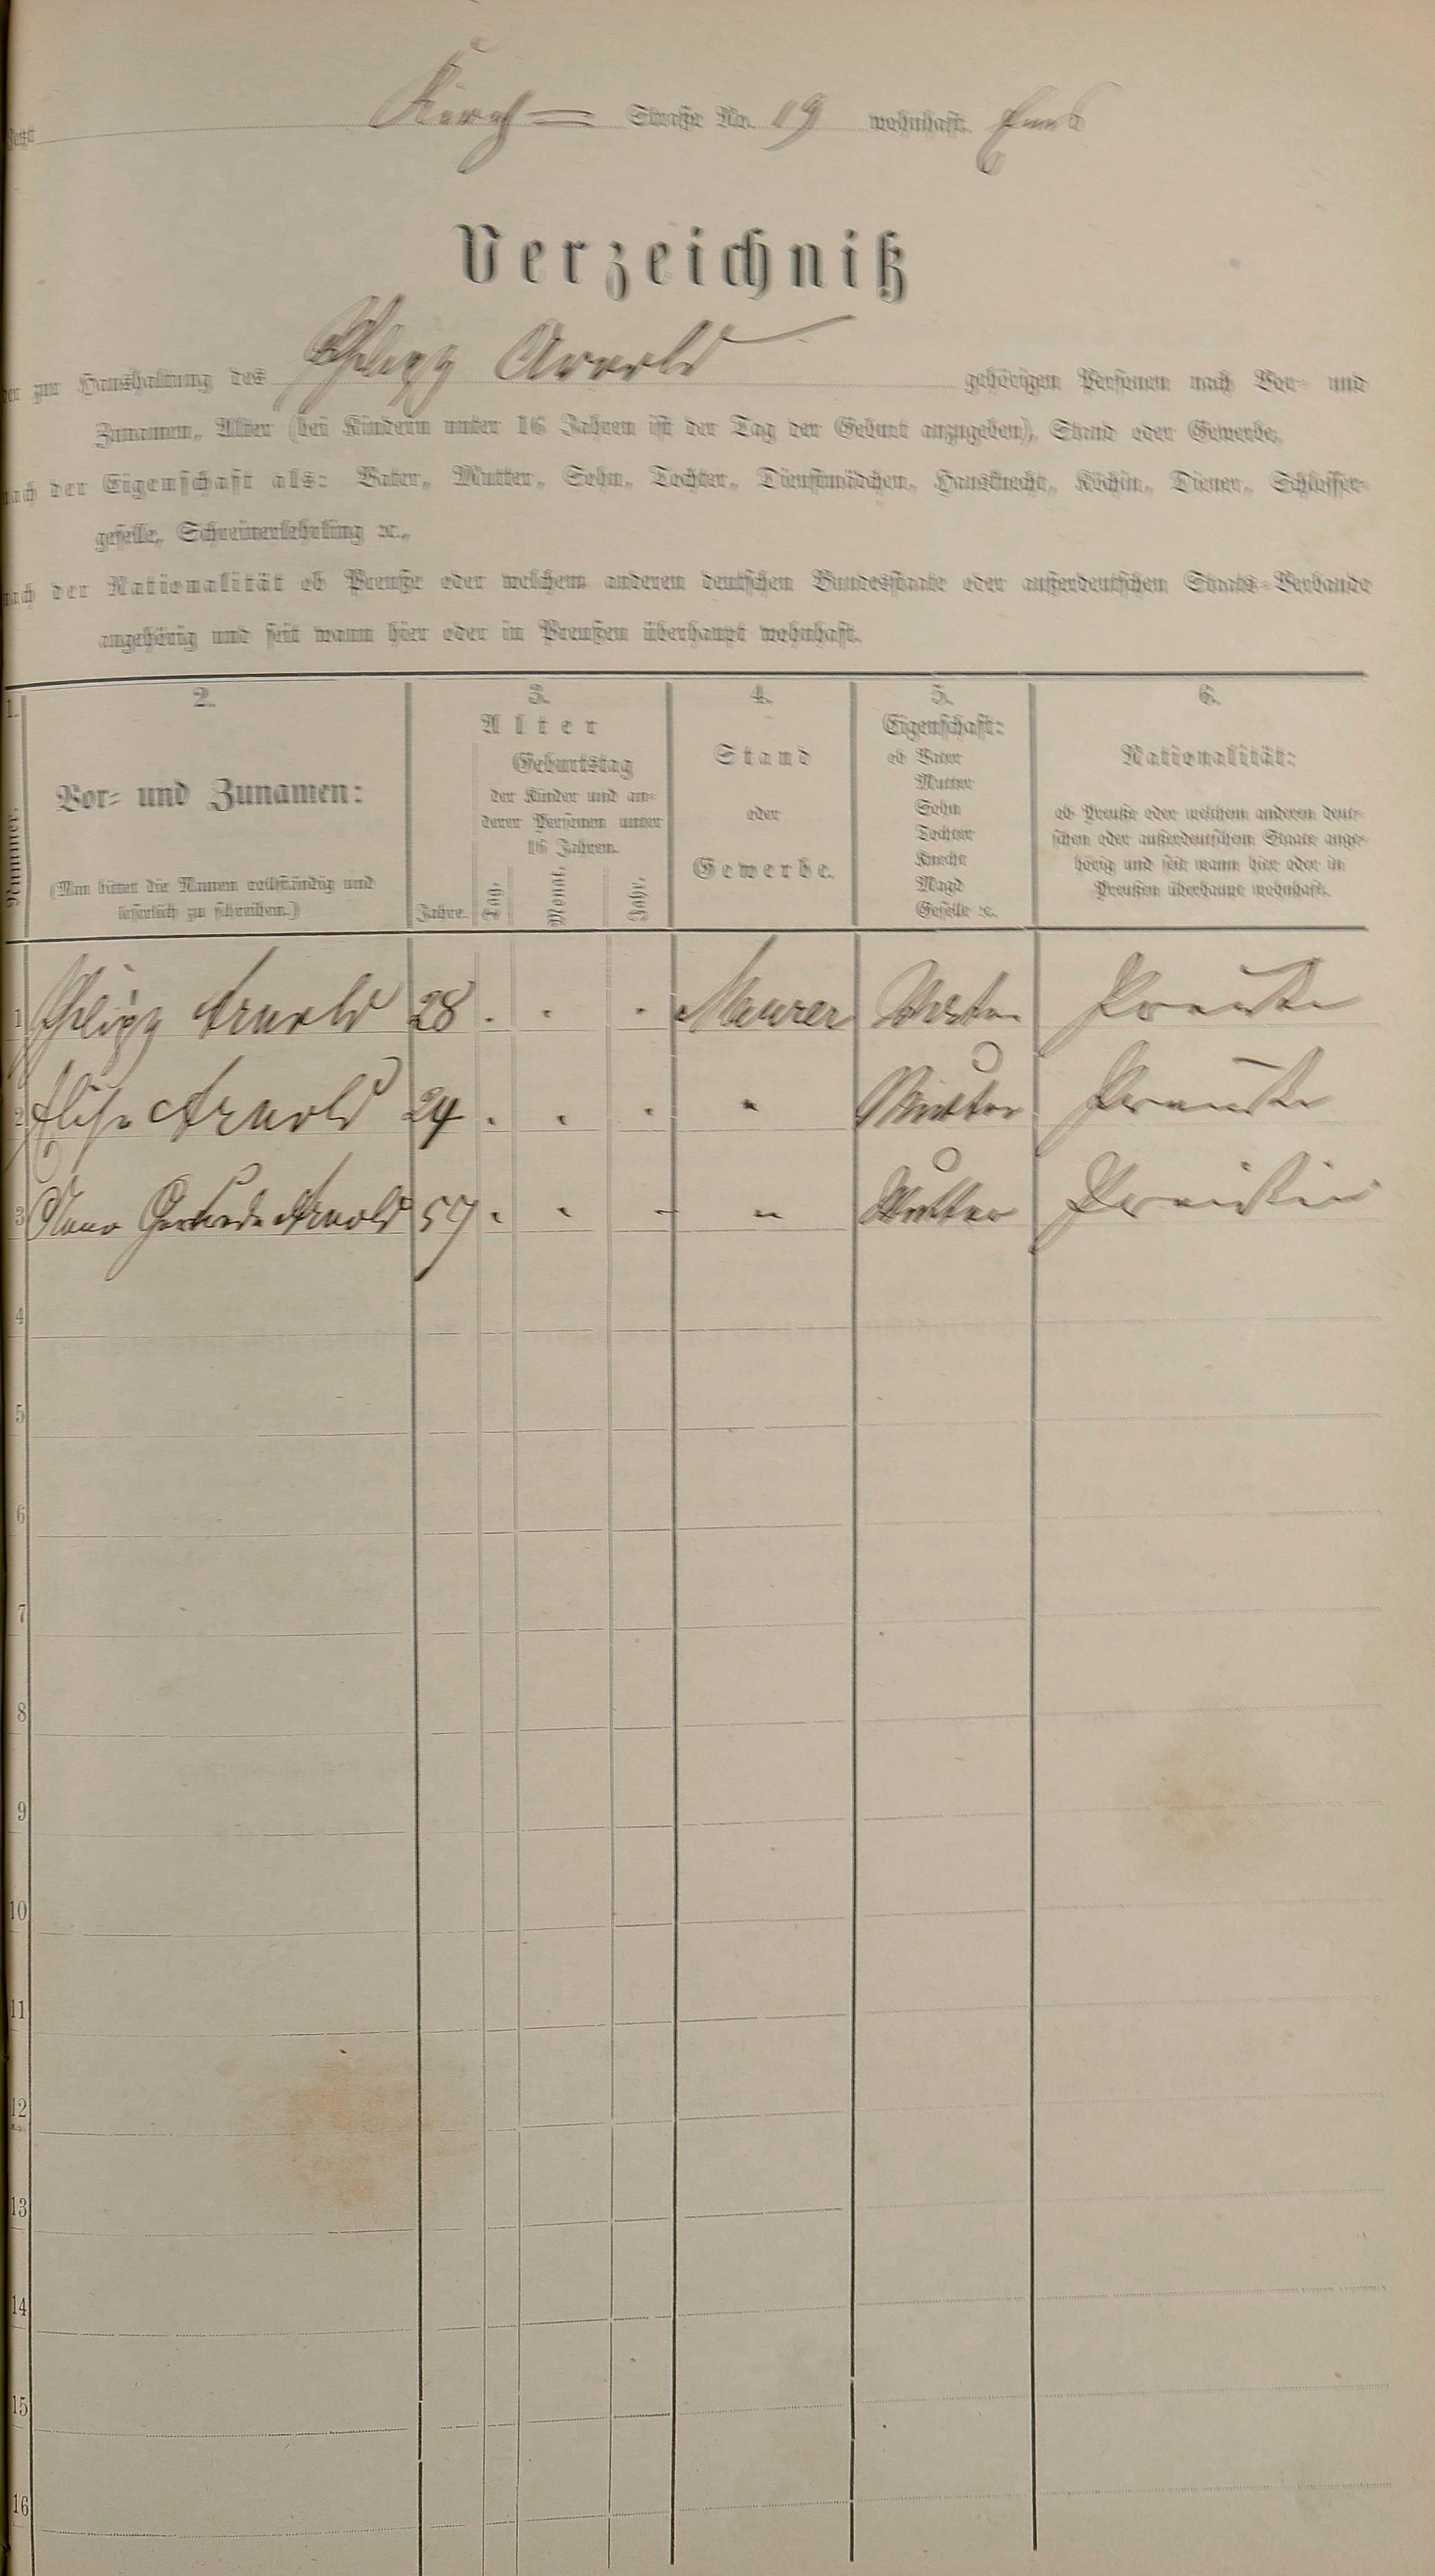 Jetzt Kirch= Straße No. 19 wohnhaft. Ems
Verzeichniß
der zur Haushaltung des Philipp Arnold gehörigen Personen nach Vor- und
Zunamen, Alter (bei Kindern unter 16 Jahren ist der Tag der Geburt anzugeben), Stand oder Gewerbe,
nach der Eigenschaft als: Vater, Mutter, Sohn, Tochter, Dienstmädchen, Hausknecht, Köchin, Diener, Schlosser-
geselle, Schreinerlehrling ꝛc.,
nach der Nationalität ob Preuße oder welchem anderen deutschen Bundesstaate oder außerdeutschen Staats-Verbande
angehörig und seit wann hier oder in Preußen überhaupt wohnhaft.
1. 2. 3. 4. 5. 6.
Nummer.
Vor- und Zunamen:
(Man bittet die Namen vollständig und
leserlich zu schreiben.)
Alter
Geburtstag
der Kinder und an-
derer Personen unter
16 Jahren.
Jahre. Tag. Monat. Jahr.
Stand
oder
Gewerbe.
Eigenschaft:
ob Vater
Mutter
Sohn
Tochter
Knecht
Magd
Geselle ꝛc.
Nationalität:
ob Preuße oder welchem anderen deut-
schen oder außerdeutschem Staate ange-
hörig und seit wann hier oder in
Preußen überhaupt wohnhaft.
1 Philipp Arnold 28 . . . Maurer Vater Preuße
2 Elise Arnold 24 . . . " Mutter Preuße
3 Gertrude Arnold 57 . . - " Mutter Preußin
4
5
6
7
8
9
10
11
12
13
14
15
16